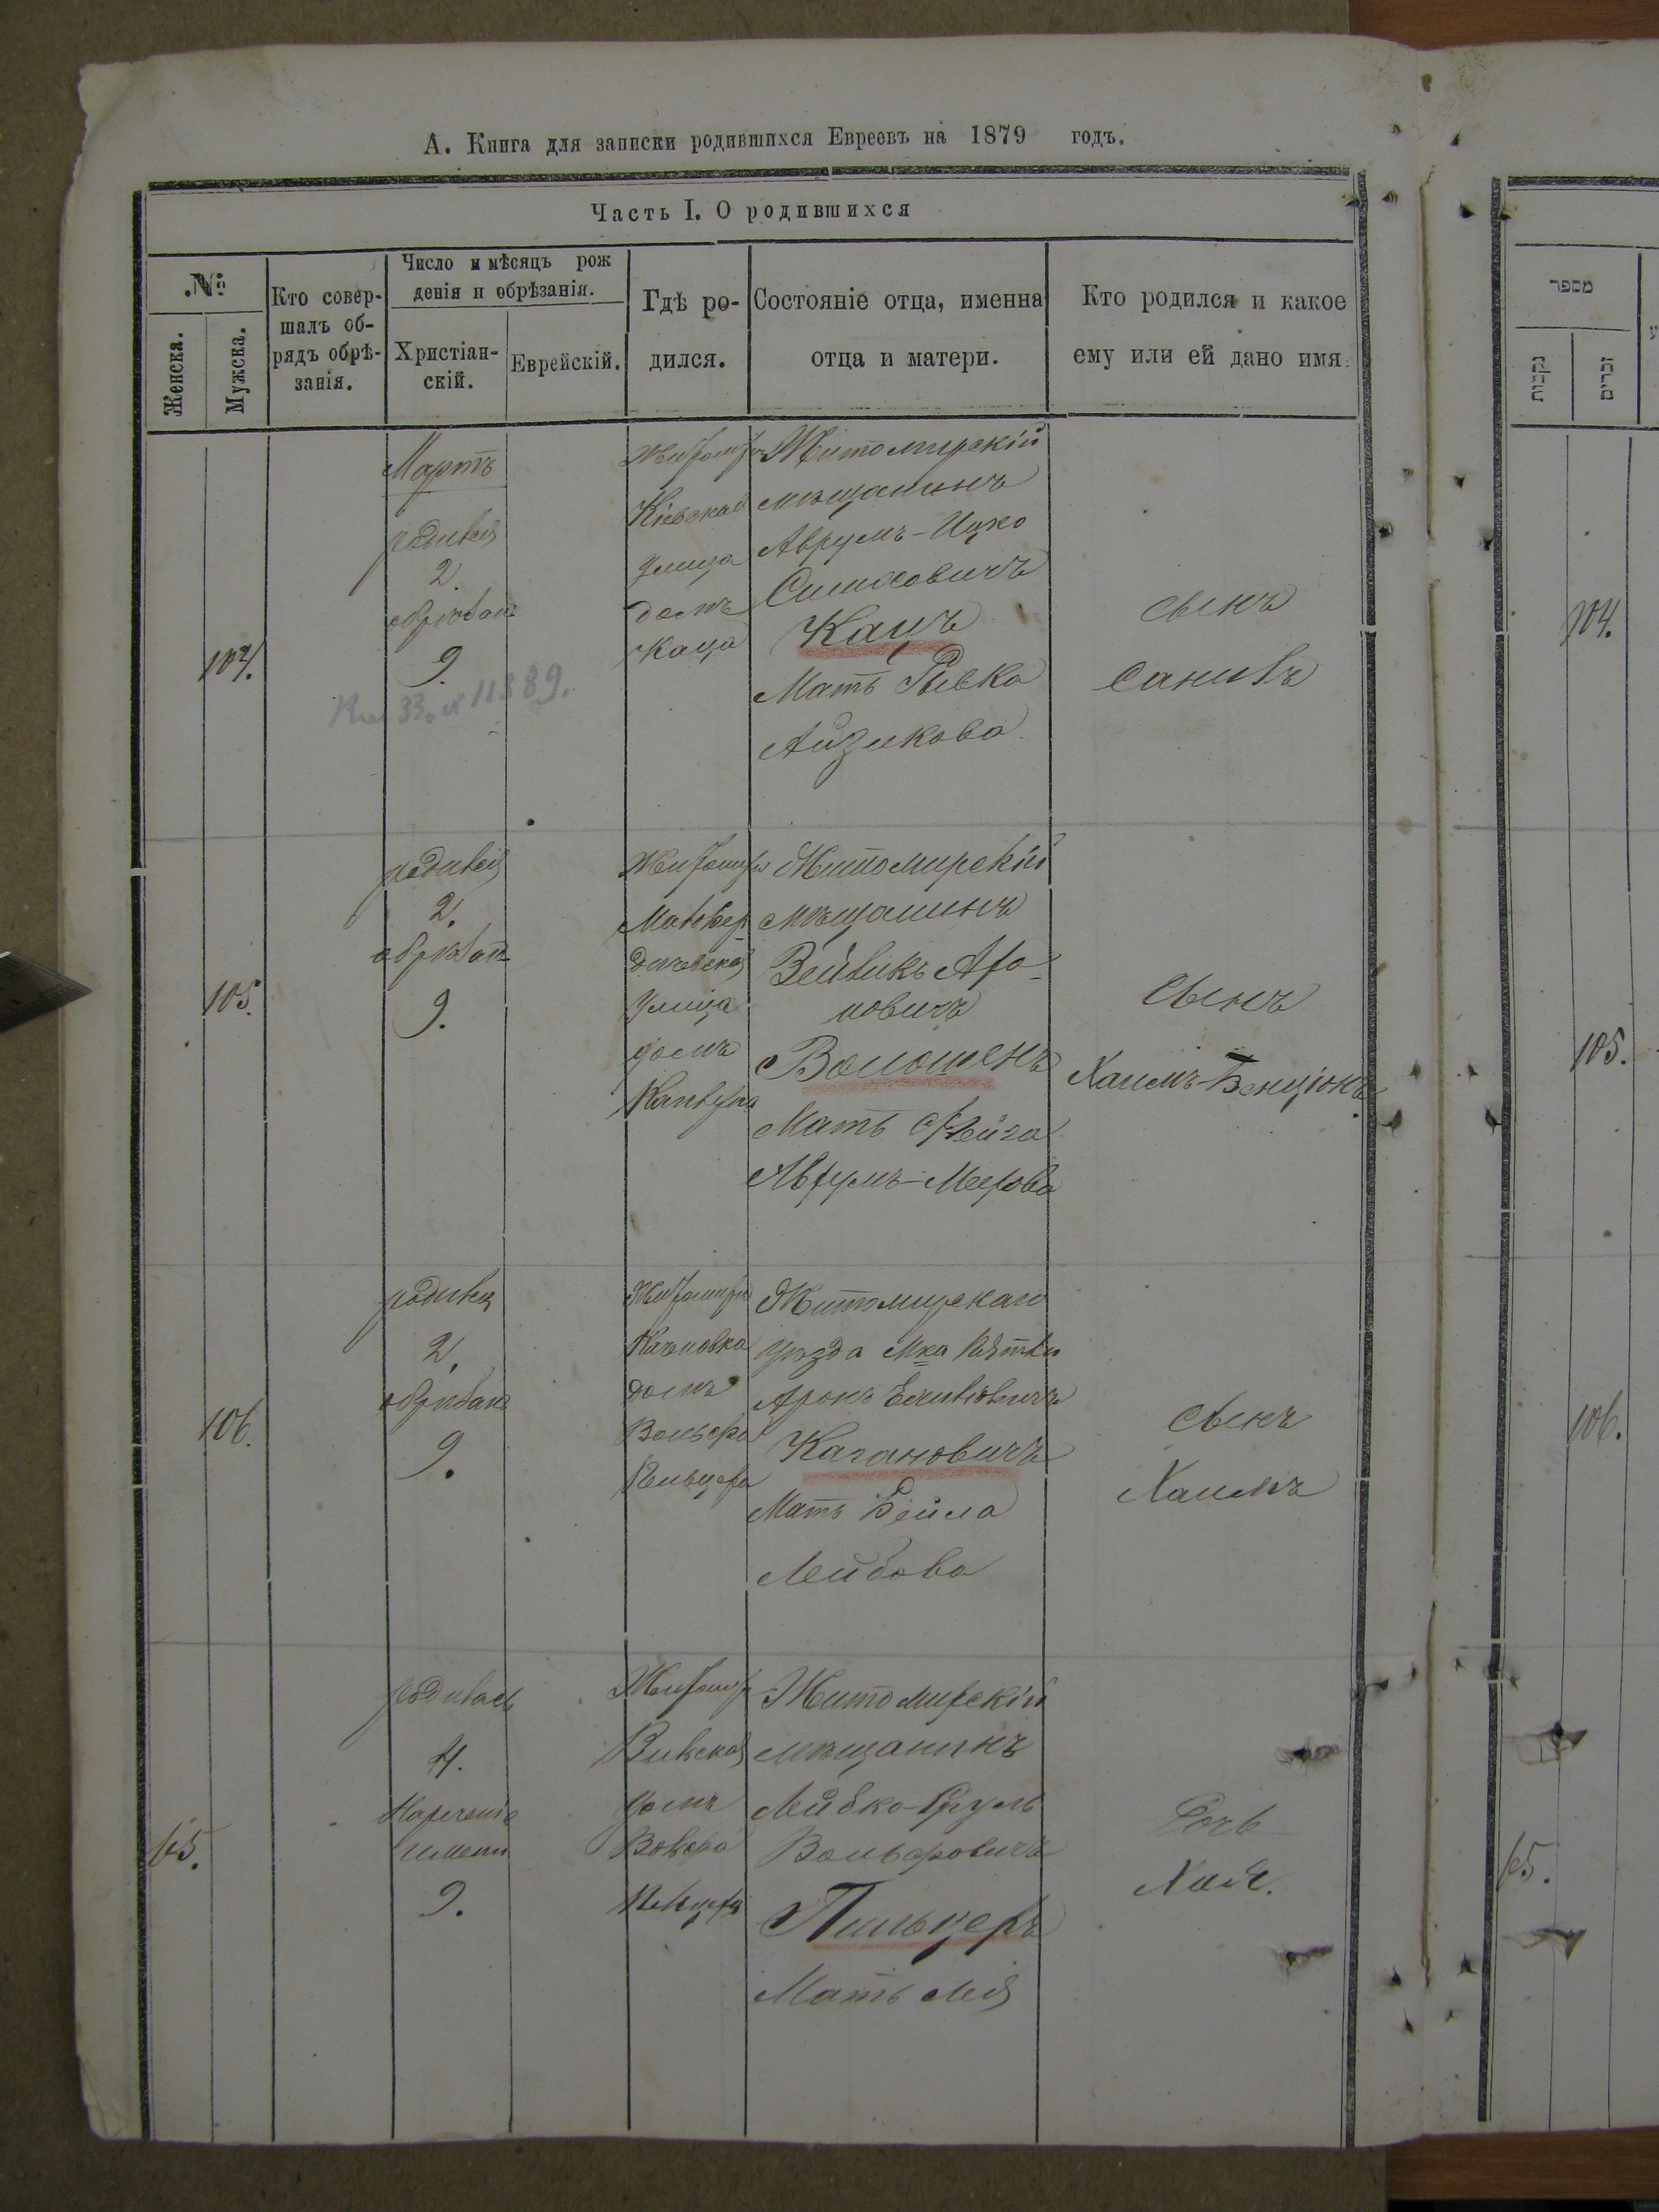 А. Книга для записки родившихся Евреевъ на 1879 годъ.
Часть I. О родившихся
№
Женска.
Мужска.
Кто совер-
шалъ об-
рядъ обрѣ-
занія.
Число и мѣсяцъ рож
денія и обрѣзанія.
Христіан-
скій.
Еврейскій.
Гдѣ ро-
дился.
Состояніе отца, именна
отца и матери.
Кто родился и какое
ему или ей дано имя.
מספר
נקבות
זכרים
104.
Мартъ
родился
2.
обрѣзанъ
9.
11889.
Житомиръ
Кіевская
улица
домъ
Каца
Житомирскій
мѣщанинъ
Аврумъ-Ицко
Симховичъ
Кацъ
Мать Рывка
Айзикова
сынъ
104.
105.
родился
2.
обрѣзанъ
9.
Житомиръ
Малобер
дичевская
улица
домъ
Житомирскій
мѣщанинъ
Зейликъ Аро-
новичъ
Волошенъ
Мать Фейга
Аврумъ-Меерова
Сынъ
Хаимъ-Бенціонъ
105.
106.
родился
2.
обрѣзанъ
9.
Житомиръ
домъ
Вольфа
Пильцера
Житомирскаго
уѣзда Мка Пятки
Аронъ
Кагановичъ
Мать Бейла
Лейбова
Сынъ
Хаимъ
106.
65.
родилась
4.
Нареченіе
имени
9.
Житомиръ
домъ
Вольфа
Житомирскій
мѣщанинъ
Лейбко-Сруль
Вольфовичъ
Пильцеръ
Мать Лея
Дочь
Хая.
65.